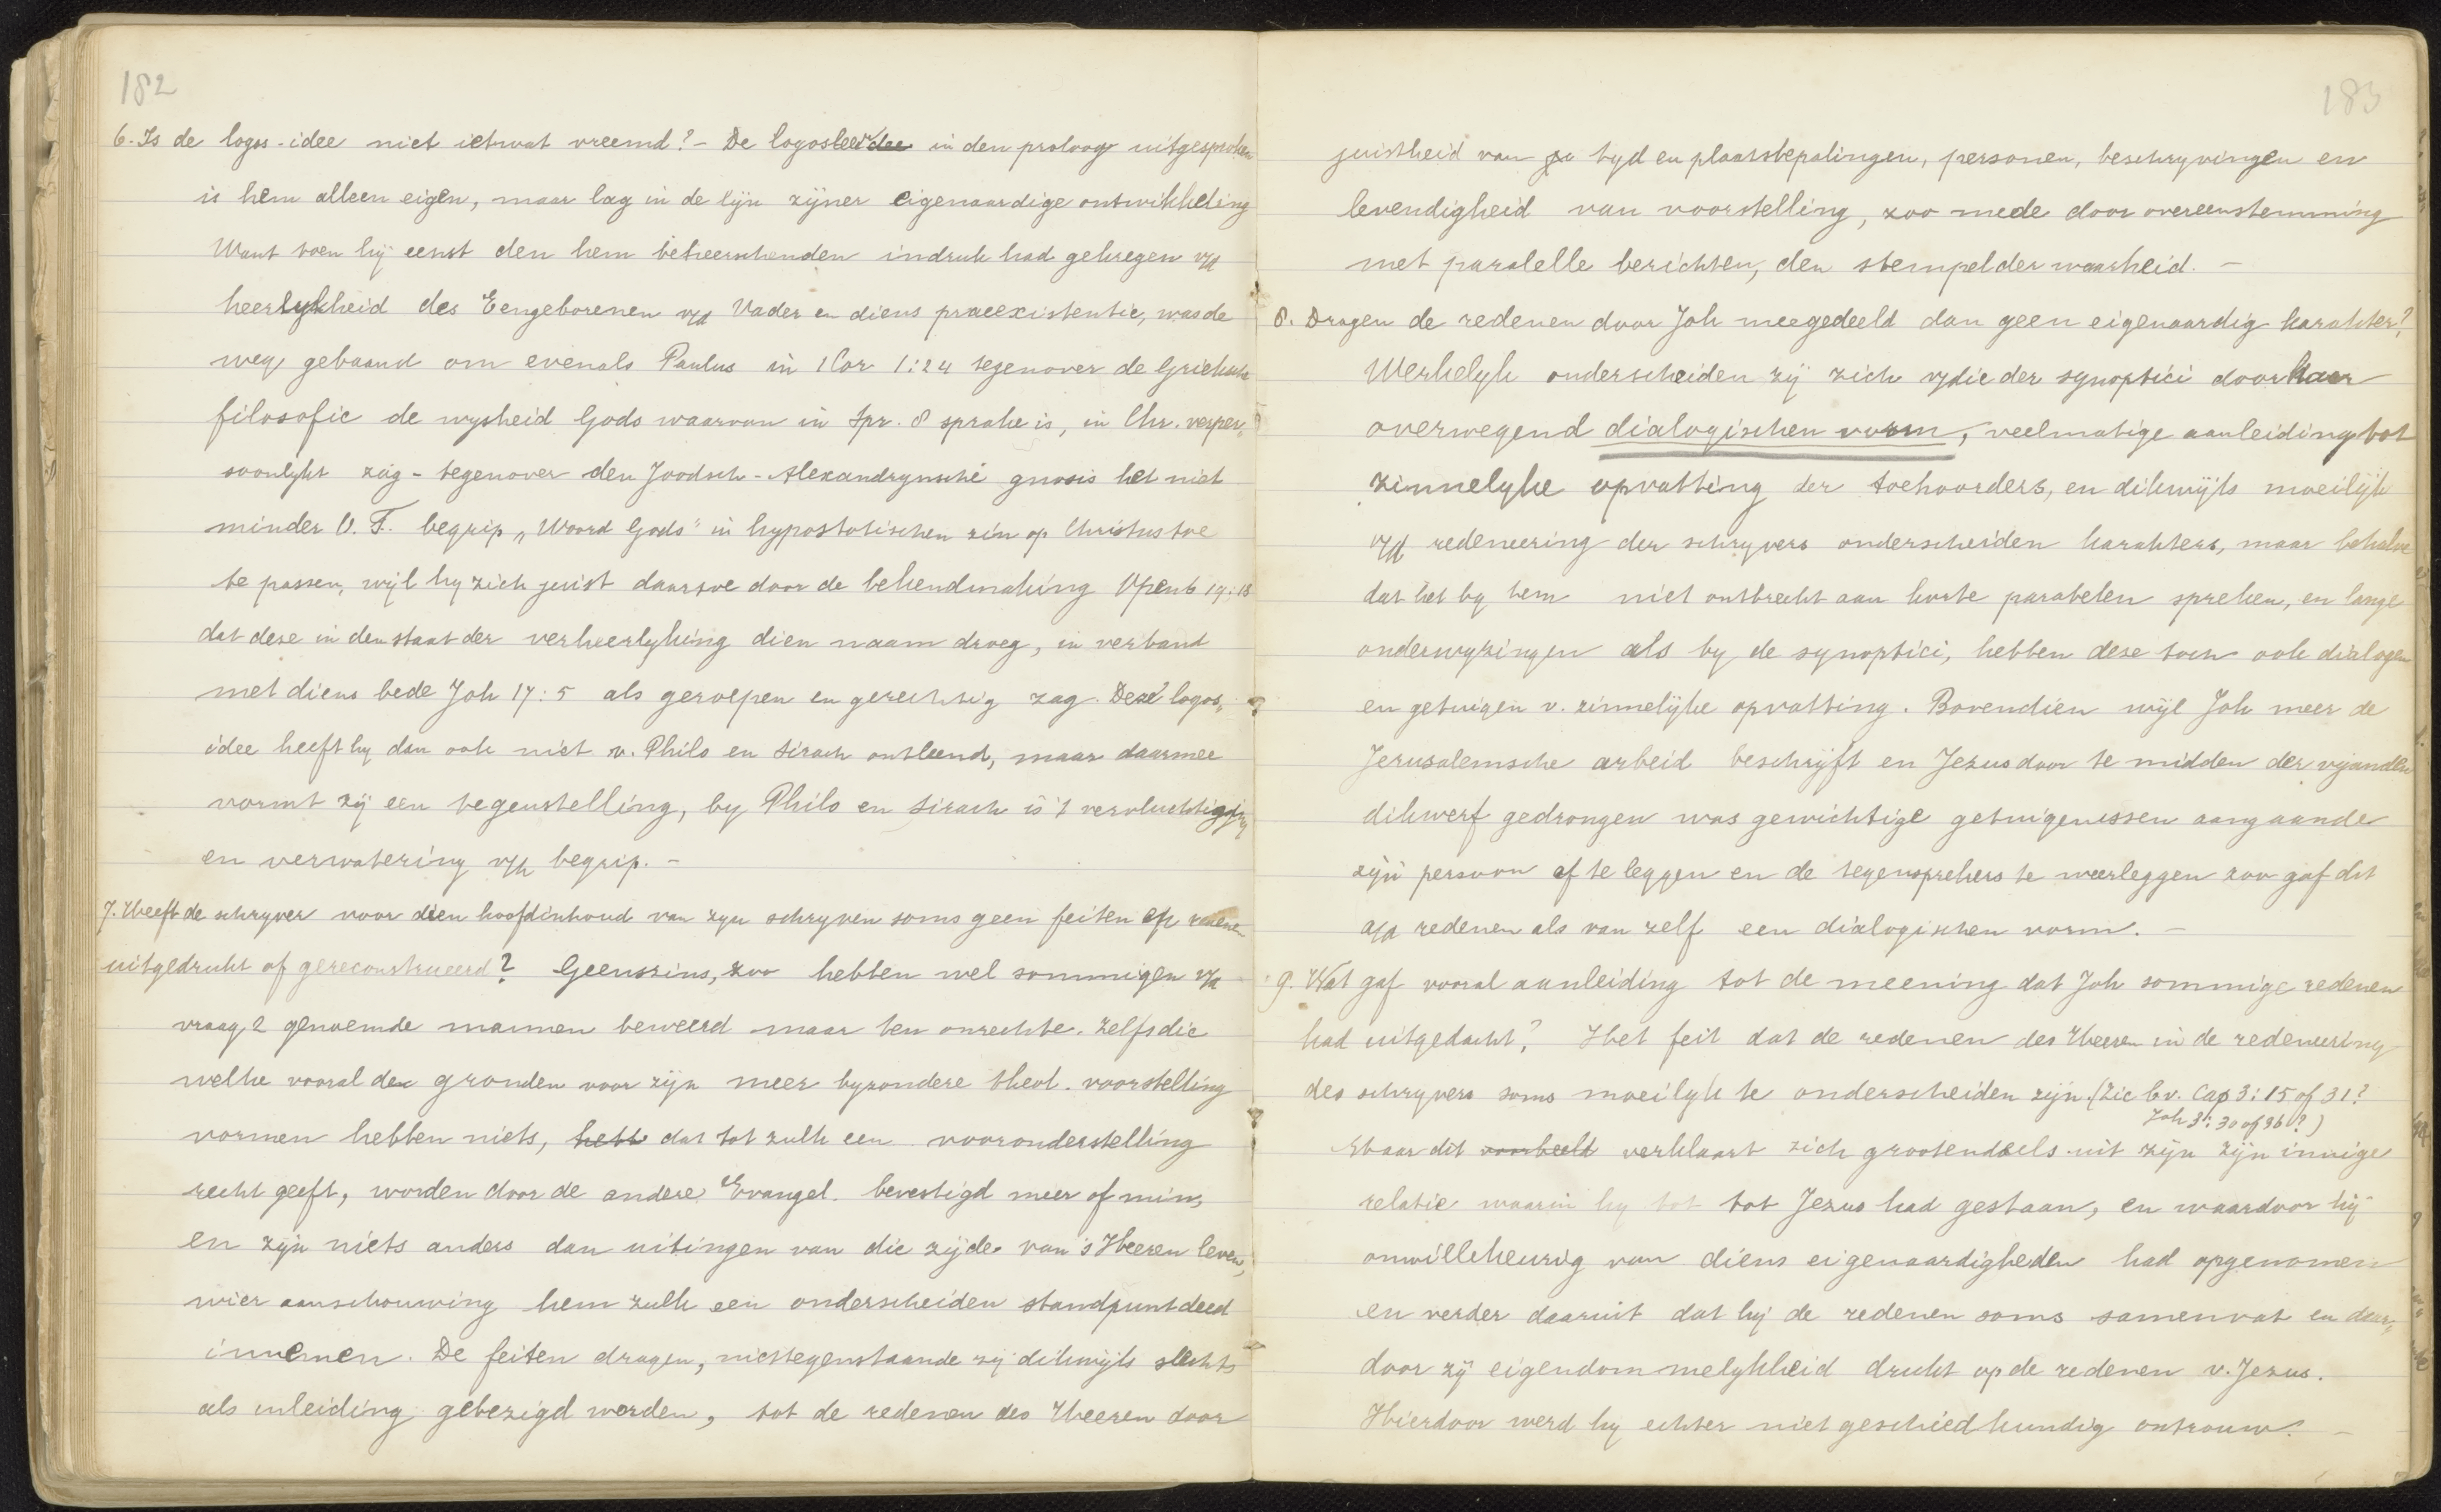 182
6. Is de logos-idee niet ietwat vreemd? - De logosleer in den proloog uitgesproken
is hem alleen eigen, maar lag in de lijn zijner eigenaardige ontwikkeling
Want toen hij eenst den hem beheerschenden indruk had gekregen v/d
heerlykheid des Eengeborenen v/d Vader en diens praeexistentie, was de
weg gebaand om evenals Paulus in 1 Cor 1:24 tegenover de Grieksche
filosofie de wysheid Gods waarvan in Spr. 8 sprake is, in Chr. verper„
soonlykt zag - tegenover den Joodsch-Alexandrynsche gnosis het niet
minder O.T. begrip „Woord Gods" in hypostatischen zin op Christus toe
te passen, wijl hy zich juist daartoe door de bekendmaking Openb 19:13
dat deze in den staat der verheerlyking dien naam droeg, in verband
met diens bede Joh 17:5 als geroepen en gerechtig zag. Deze logos„
idee heeft hy dan ook niet v. Philo en Sirach ontleend, maar daarmee
vormt zij een tegenstelling, by Philo en Sirach is 't vervluchtiging
en verwatering v/h begrip. -
7. Heeft de schryver voor dien hoofdinhoud van zyn schryven soms geen feiten en redenen
uitgedrukt of gereconstrueerd? Geenszins, zoo hebben wel sommigen v/d
vraag 2 genoemde mannen beweerd maar ten onrechte. Zelfs die
welke vooral den gronden voor zijn meer byzondere theol. voorstelling
vormen hebben niets, hebb dat tot zulk een vooronderstelling
recht geeft, worden door de andere Evangel. bevestigd meer of min,
en zijn niets anders dan uitingen van die zijde van 's Heeren leven,
wier aanschouwing hem zulk een onderscheiden standpunt deed
innemen. De feiten dragen, niettegenstaande zij dikwijls slechts
als inleiding gebezigd worden, tot de redenen des Heeren door
183
juistheid van tyd en plaatsbepalingen, personen, beschryvingen en
levendigheid van voorstelling, zoo mede door overeenstemming
met paralelle berichten, den stempel der waarheid. -
8. Dragen de redenen door Joh meegedeeld dan geen eigenaardig karakter?
Werkelyk onderscheiden zij zich v/die der synoptici door haar
overwegend dialogischen vorm, veelmatige aanleiding tot
zinnelyke opvatting der toehoorders, en dikwijls moeilijk
v/d redeneering der schryvers onderscheiden karakters, maar behalve
dat het by hem niet ontbreekt aan korte parabelen spreken, en lange
onderwyzingen als by de synoptici, hebben deze toch ook dialogen
en getuigen v. zinnelijke opvatting. Bovendien wijl Joh meer de
Jerusalemsche arbeid beschrijft en Jezus daar te midden der vyanden
dikwerf gedrongen was gewichtige getuigenissen aangaande
zijn persoon af te leggen en de tegensprekers te weerleggen zoo gaf dit
a/d redenen als van zelf een dialogischen vorm. -
9. Wat gaf vooral aanleiding tot de meening dat Joh sommige redenen
had uitgedacht? Het feit dat de redenen des Heeren in de redeneering
des schryvers soms moeilyk te onderscheiden zijn. (Zie bv. Cap 3:15 of 31?
Joh 3: 30 of 36?)
Maar dit voorbeeld verklaart zich grootendeels uit zijn zijn innige
relatie waarin hy tot tot Jezus had gestaan, en waardoor hij
onwillekeurig van diens eigenaardigheden had opgenomen
en verder daaruit dat hij de redenen soms samenvat en daar„
door zij eigendommelykheid drukt op de redenen v. Jezus.
Hierdoor werd hy echter niet geschiedkundig ontrouw. -